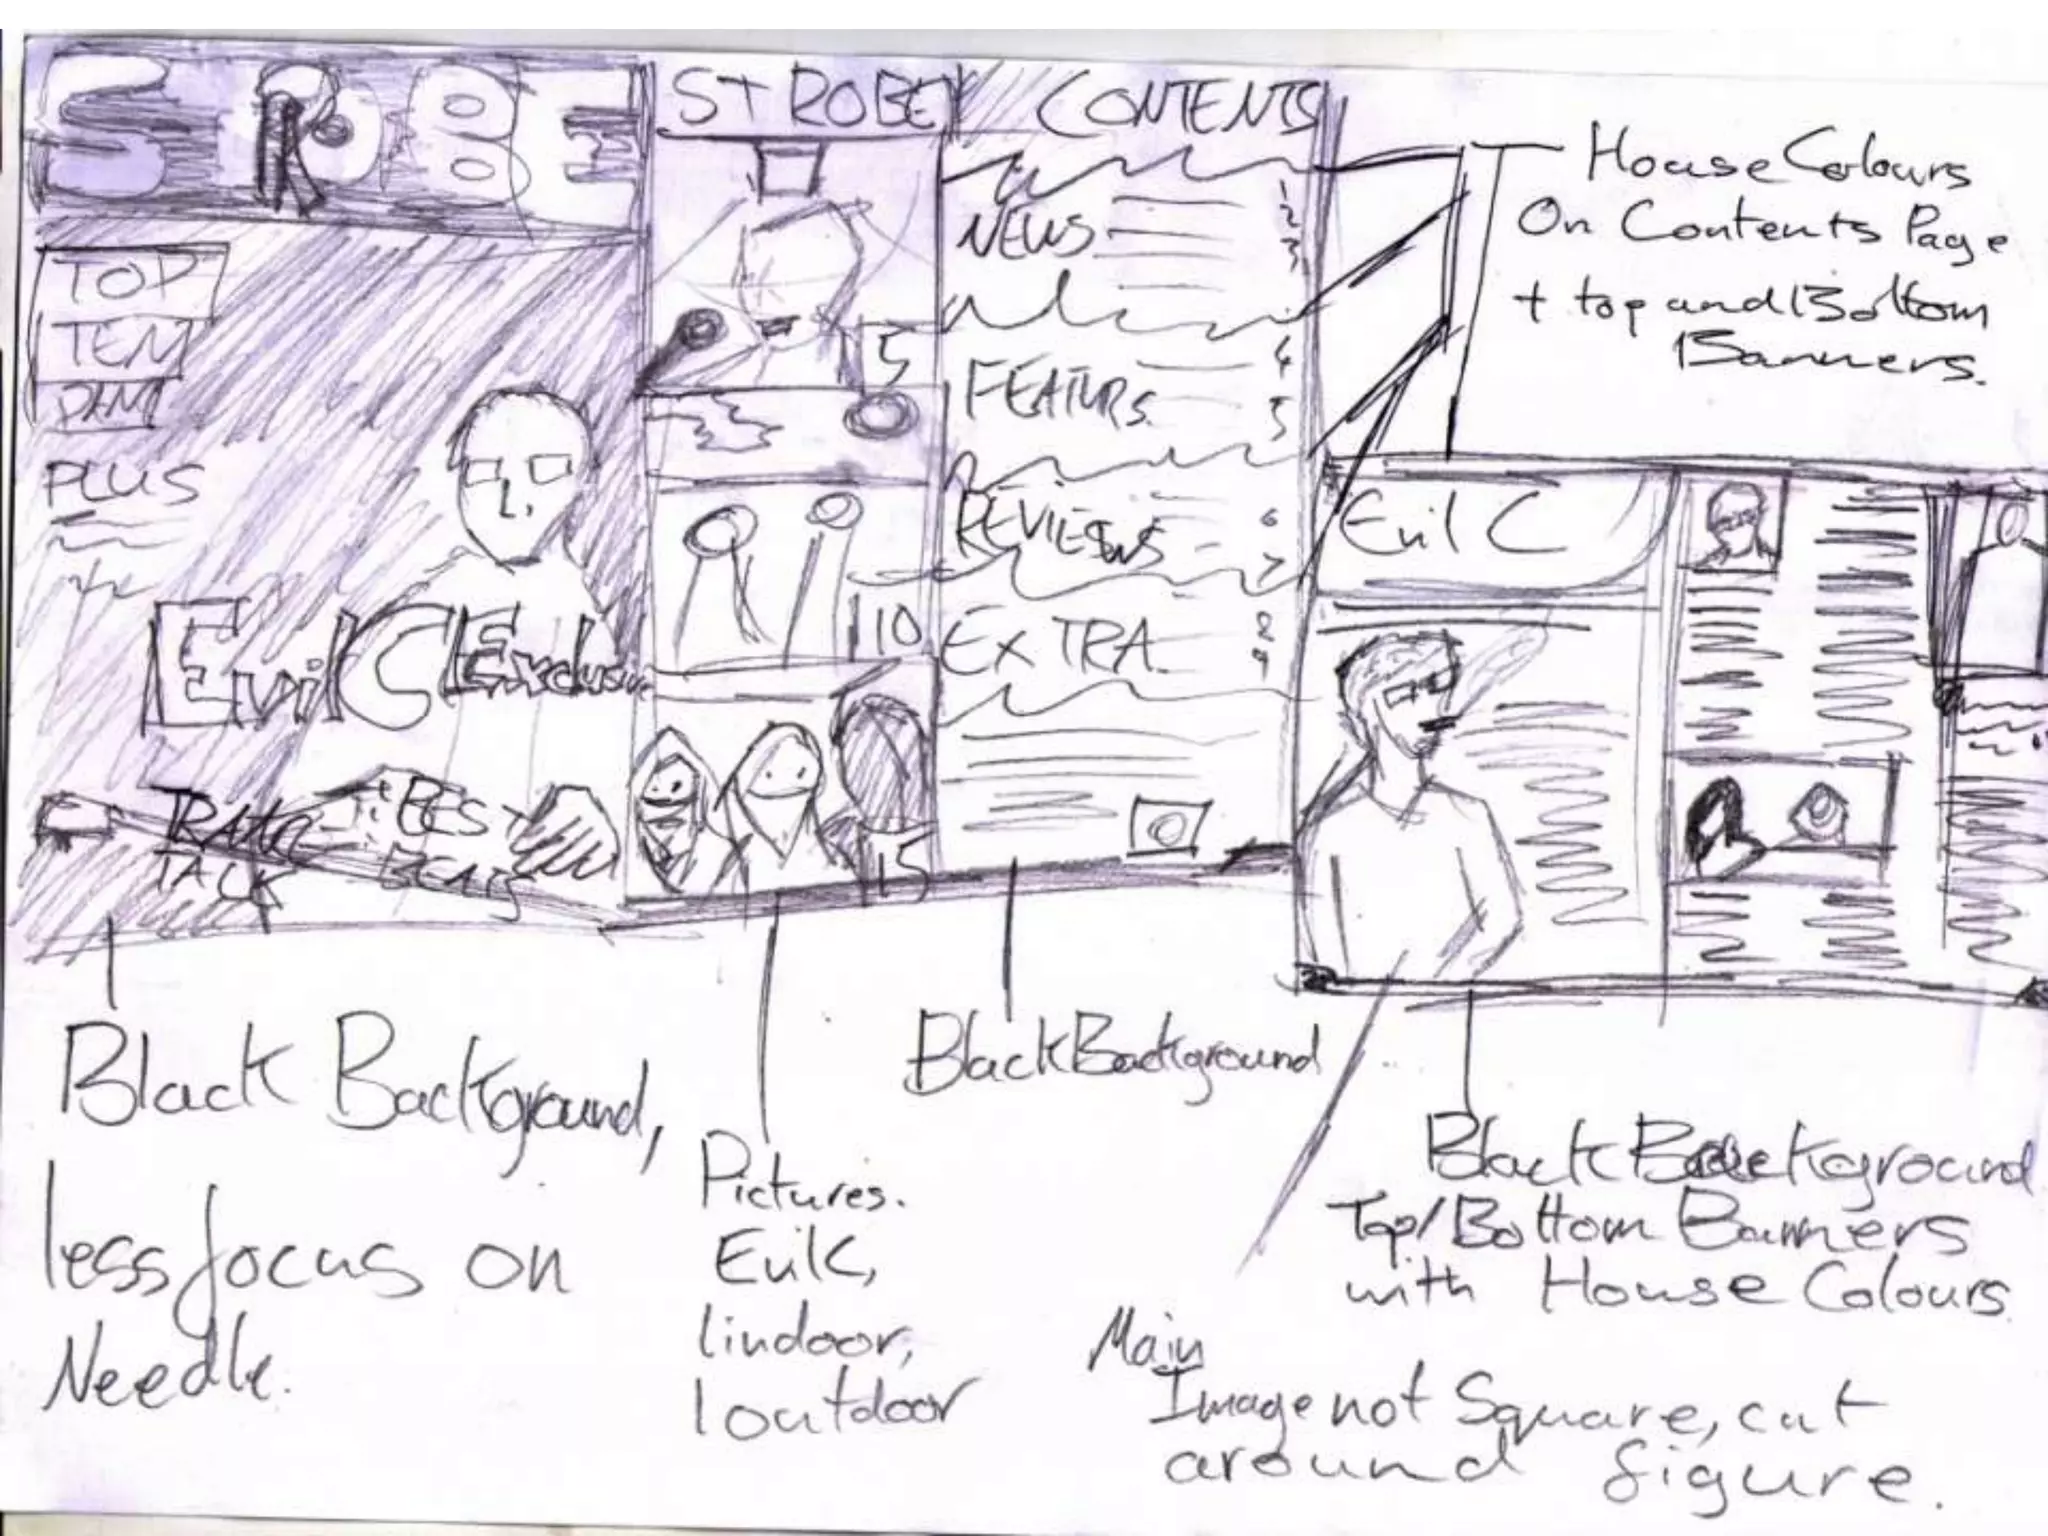 S R BE
TOP
TEN
PLUS
Evil C Exclusive
TALK
BEST
BEATS
STROBE
5
10
15
CONTENTS
NEWS
1
2
3
FEATURS
4
5
REVIEWS
6
7
EXTRA
9
House Colours
On Contents Page
+ top and Bottom
Banners.
Evil C
Black Background,
less focus on
Needle.
Pictures.
EvilC,
1indoor,
1outdoor
Black Background
Black Background
Top/Bottom Banners
with House Colours.
Main
Image not Square, cut
around figure.